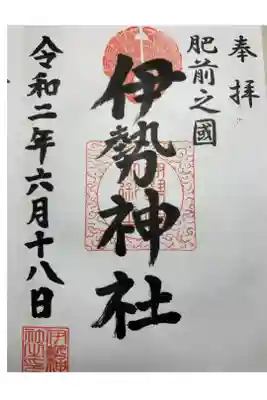 奉拝
肥前之國
伊勢神社
令和二年六月十八日